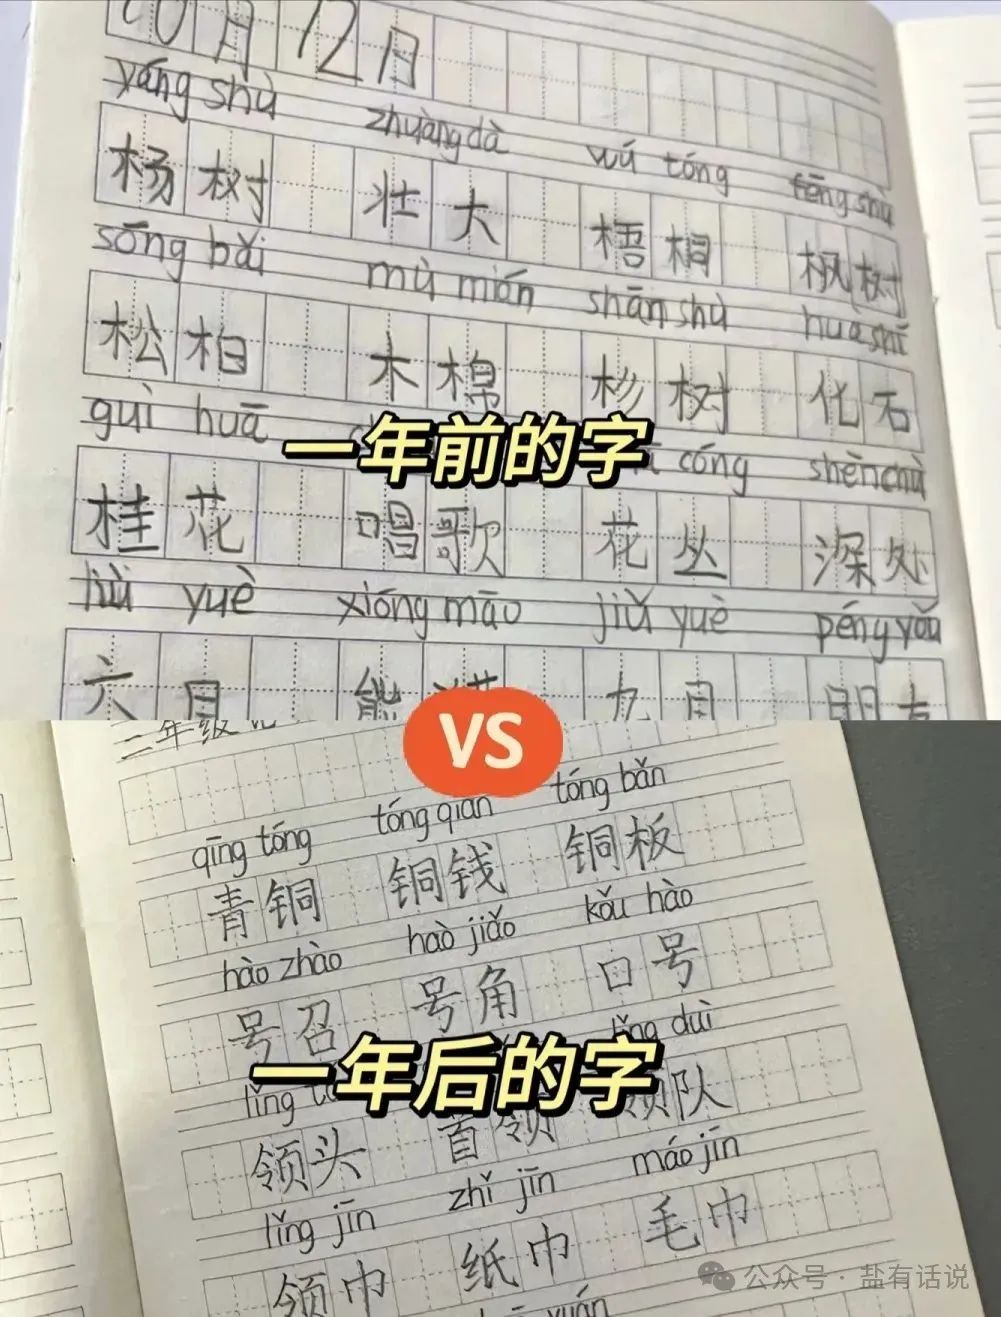 10月12月
yáng shù zhuàng dà wú tóng fēng shù
杨树 壮大 梧桐 枫树
sōng bǎi mù mián shān shù huà shí
松柏 木棉 杉树 化石
guì huā cóng shēn chù
一年前的字
桂花 唱歌 花丛 深处
yuè xióng māo jiǔ yuè péng yǒu
六月 熊猫 九月 朋友
VS
二年级
qīng tóng tóng qián tóng bǎn
青铜 铜钱 铜板
hào zhào haò jiǎo kǒu hào
号召 号角 口号
一年后的字
lǐng duì
领头 首领 领队
lǐng jīn zhǐ jīn máo jīn
领巾 纸巾 毛巾
公众号·盐有话说